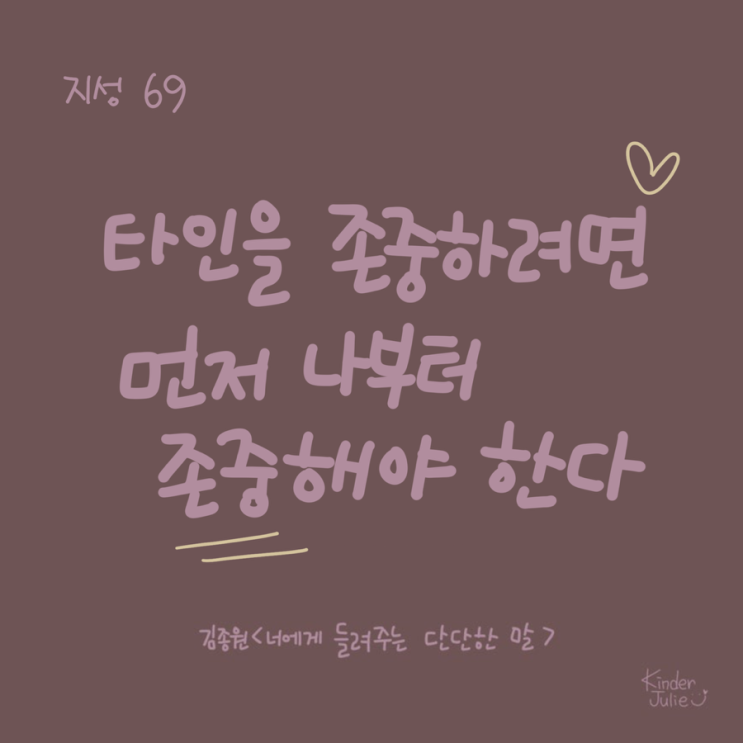 지성 69
타인을 존중하려면
먼저 나부터
존중해야 한다
김종원<너에게 들려주는 단단한 말>
Kinder
Julie